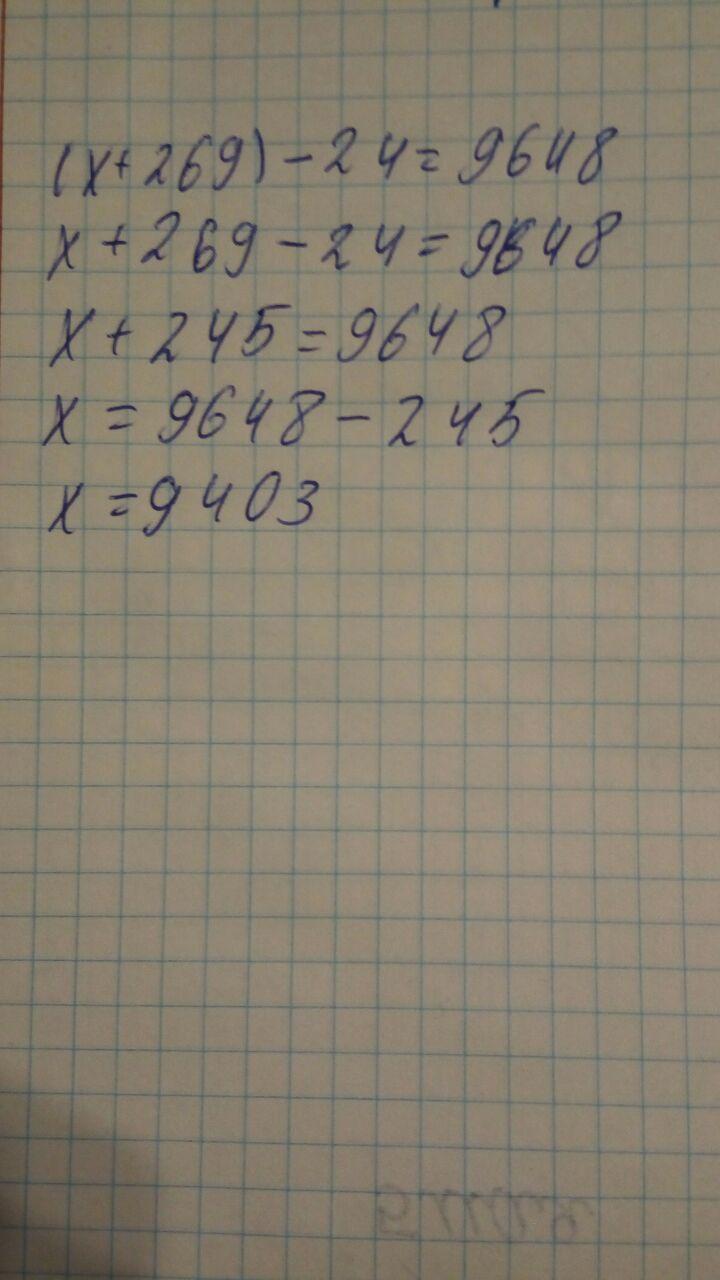 (x+269)-24=9648
x+269-24=9648
x+245=9648
x=9648-245
x=9403